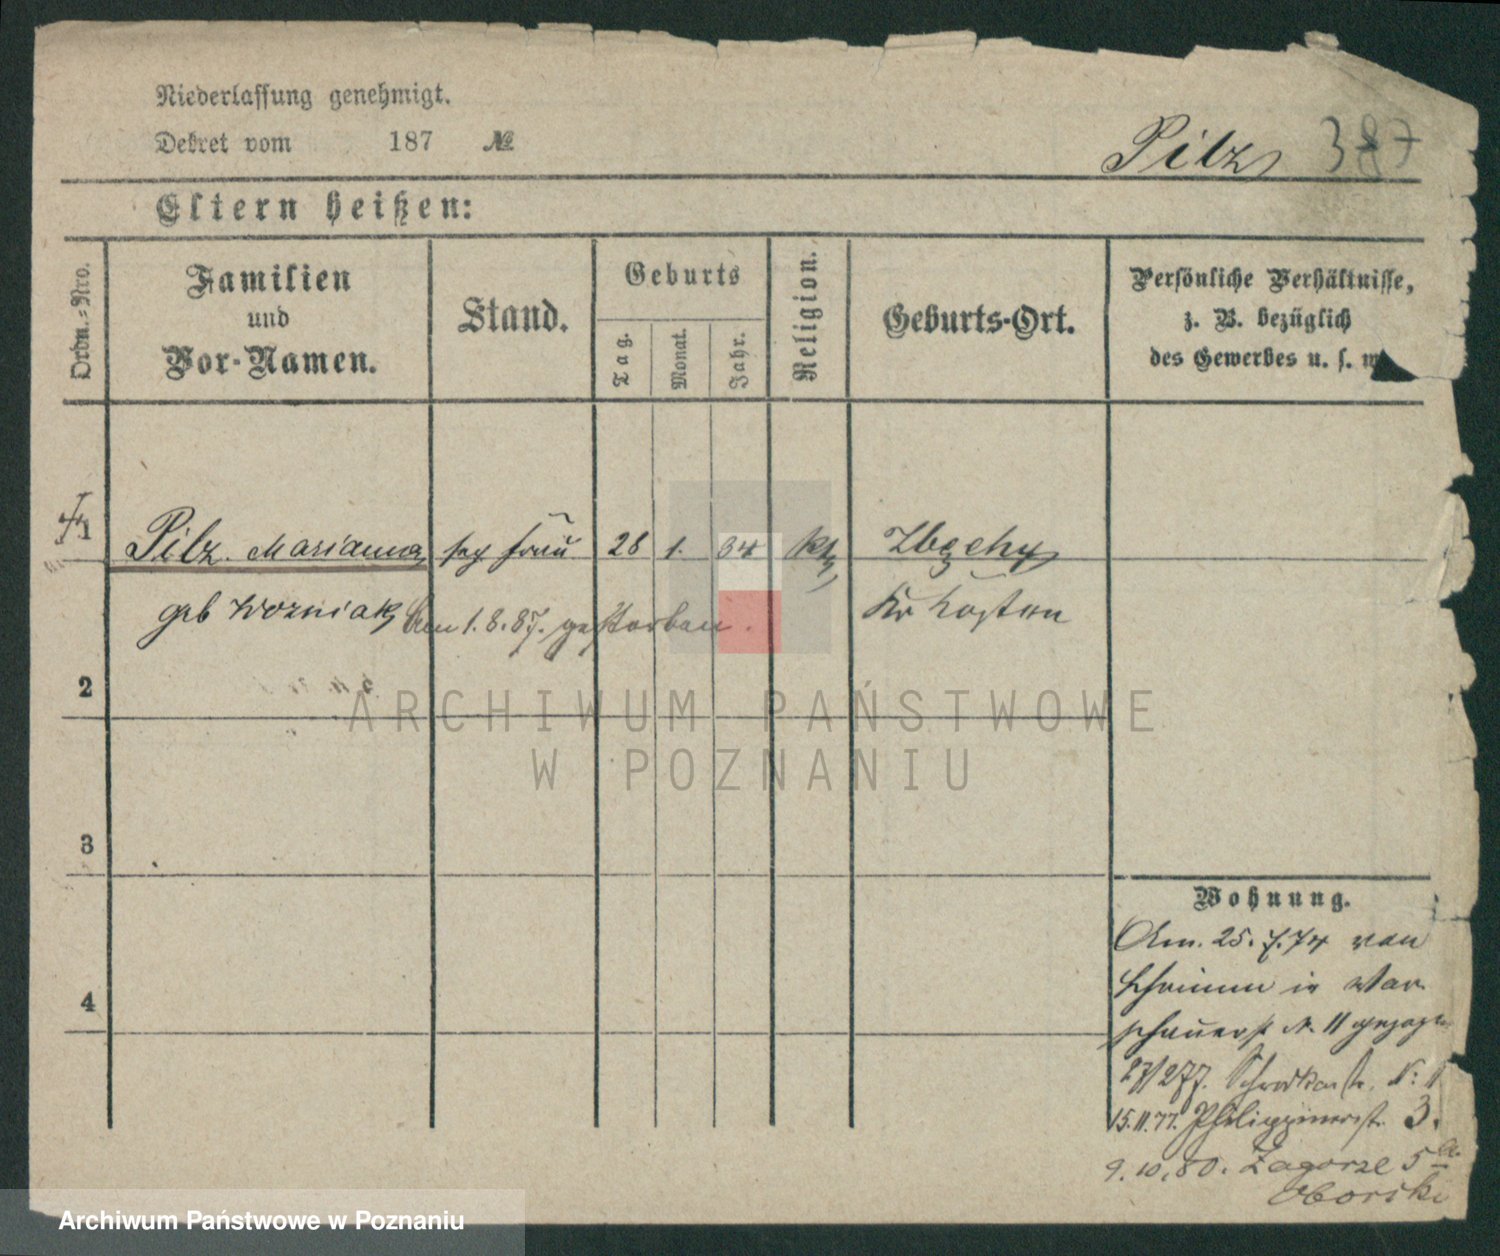 Niederlassung genehmigt.
Dekret vom 187 №
Pilz 387
Eltern heißen:
Ordn.-Nro.
Familien
und
Vor-Namen.
Stand.
Geburts
Tag.
Monat.
Jahr.
Religion.
Geburts-Ort.
Persönliche Verhältnisse,
z. B. bezüglich
des Gewerbes u. s. w
1 Pilz Marianna frau 28 1. 34 kth Zbęchy
geb Wozniak am 1.8.87. gestorben. Kr Kosten
2
3
4
Wohnung.
Am. 25.7.74 von
Schrimm in War
schauerst N. 11 gezogen
27/2 77. N:
15.11.77. Philippinerst. 3.
9.10.80. Zagorze 5
Oborski
ARCHIWUM PAŃSTWOWE
W POZNANIU
Archiwum Państwowe w Poznaniu